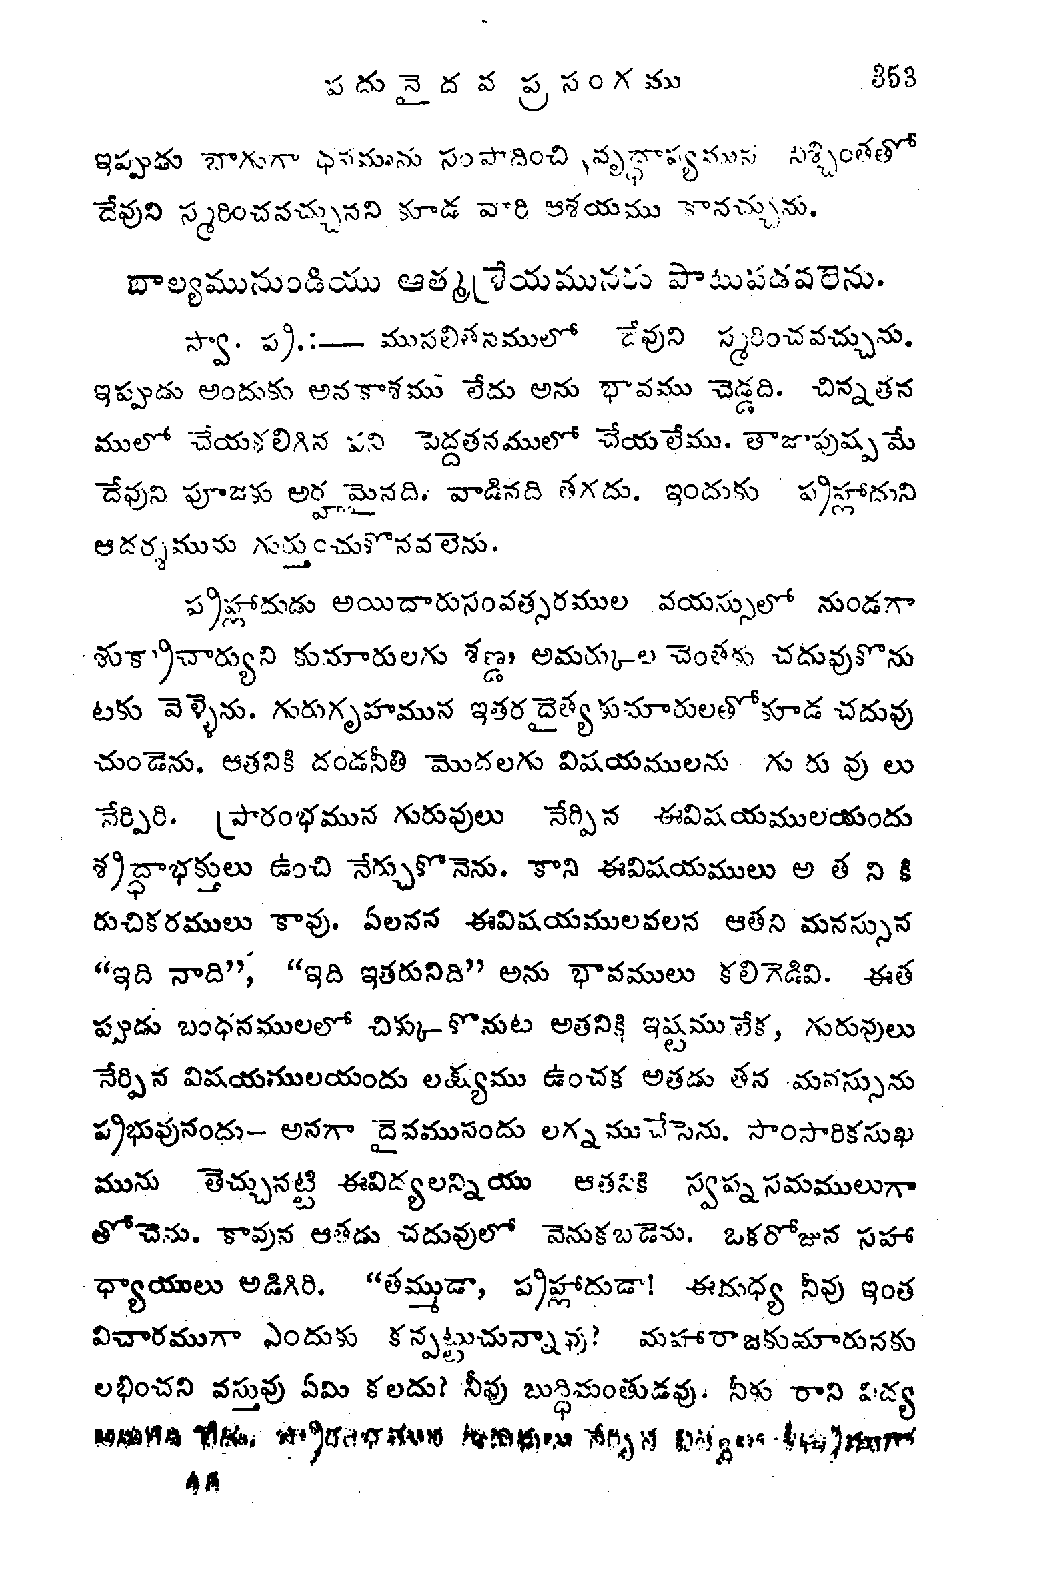 పదునైదవ ప్రసంగము 353
ఇప్పుడు బాగుగా ధనమును సంపాదించి వృద్ధాప్యమున నిశ్చింతతో
దేవుని స్మరించనచ్చునని కూడ వారి ఆశయము కానచ్చును.
బాల్యమునుండియు ఆత్మశ్రేయమునకు పాటుపడవలెను.
స్వా. ప్రి.:— ముసలితనములో దేవుని స్మరించవచ్చును.
ఇప్పుడు అందుకు అవకాశము లేదు అను భావము చెడ్డది. చిన్నతన
ములో చేయకలిగిన పని పెద్దతనములో చేయలేము. తాజాపుష్పమే
దేవుని పూజకు అర్హమైనది. వాడినది తగదు. ఇందుకు ప్రహ్లాదుని
ఆదర్శమును గుర్తుంచుకొనవలెను.
ప్రహ్లాదుడు అయిదారుసంవత్సరముల వయస్సులో నుండగా
శుక్రాచార్యుని కుమారులగు శణ్డ, అమర్కుల చెంతకు చదువుకొను
టకు వెళ్ళెను. గురుగృహమున ఇతరదైత్యకుమారులతోకూడ చదువు
చుండెను. ఆతనికి దండనీతి మొదలగు విషయములను గురువులు
నేర్పిరి. ప్రారంభమున గురువులు నేర్పిన ఈవిషయములయందు
శ్రద్ధాభక్తులు ఉంచి నేర్చుకొనెను. కాని ఈవిషయములు అతనికి
రుచికరములు కావు. ఏలనన ఈవిషయములవలన ఆతని మనస్సున
“ఇది నాది”, “ఇది ఇతరునిది” అను భావములు కలిగెడివి. ఈత
ప్పుడు బంధనములలో చిక్కుకొనుట అతనికి ఇష్టములేక, గురువులు
నేర్పిన విషయములయందు లక్ష్యము ఉంచక అతడు తన మనస్సును
ప్రభువునందు— అనగా దైవమునందు లగ్నముచేసెను. సాంసారికసుఖ
మును తెచ్చునట్టి ఈవిద్యలన్నియు ఆతనికి స్వప్నసమములుగా
తోచెను. కావున ఆతడు చదువులో వెనుకబడెను. ఒకరోజున సహా
ధ్యాయులు అడిగిరి. “తమ్ముడా, ప్రహ్లాదుడా! ఈదుధ్య నీవు ఇంత
విచారముగా ఎందుకు కన్పట్టుచున్నావు? మహారాజకుమారునకు
లభించని వస్తువు ఏమి కలదు? నీవు బుద్ధిమంతుడవు. నీకు రాని విద్య